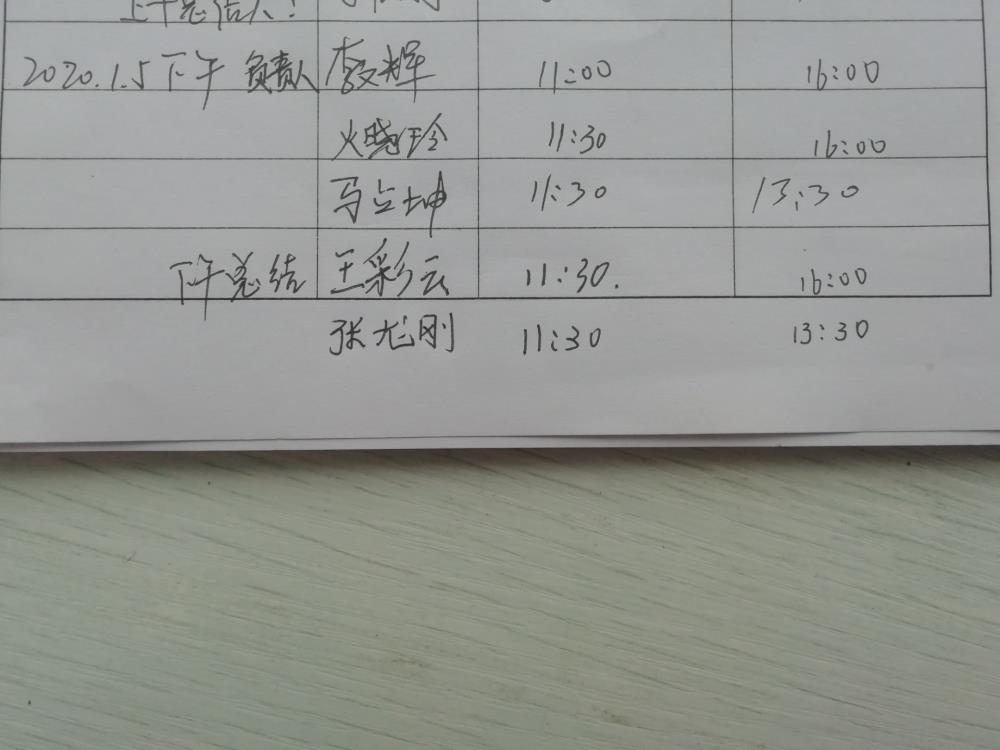 上午总结人：
2020.1.5下午 负责人 李文辉 11:00 16:00
火晓玲 11:30 16:00
马占坤 11:30 13:30
下午总结 王彩云 11:30. 16:00
张龙刚 11:30 13:30